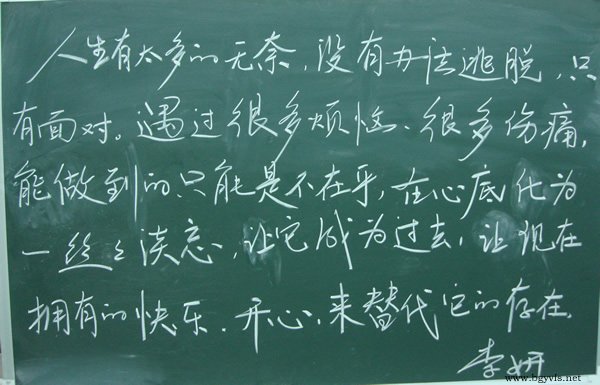 人生有太多的无奈，没有办法逃脱，只
有面对。遇过很多烦恼、很多伤痛，
能做到的只能是不在乎，在心底化为
一丝丝淡忘，让它成为过去，让现在
拥有的快乐、开心，来替代它的存在。
李妍
www.bgyvls.net